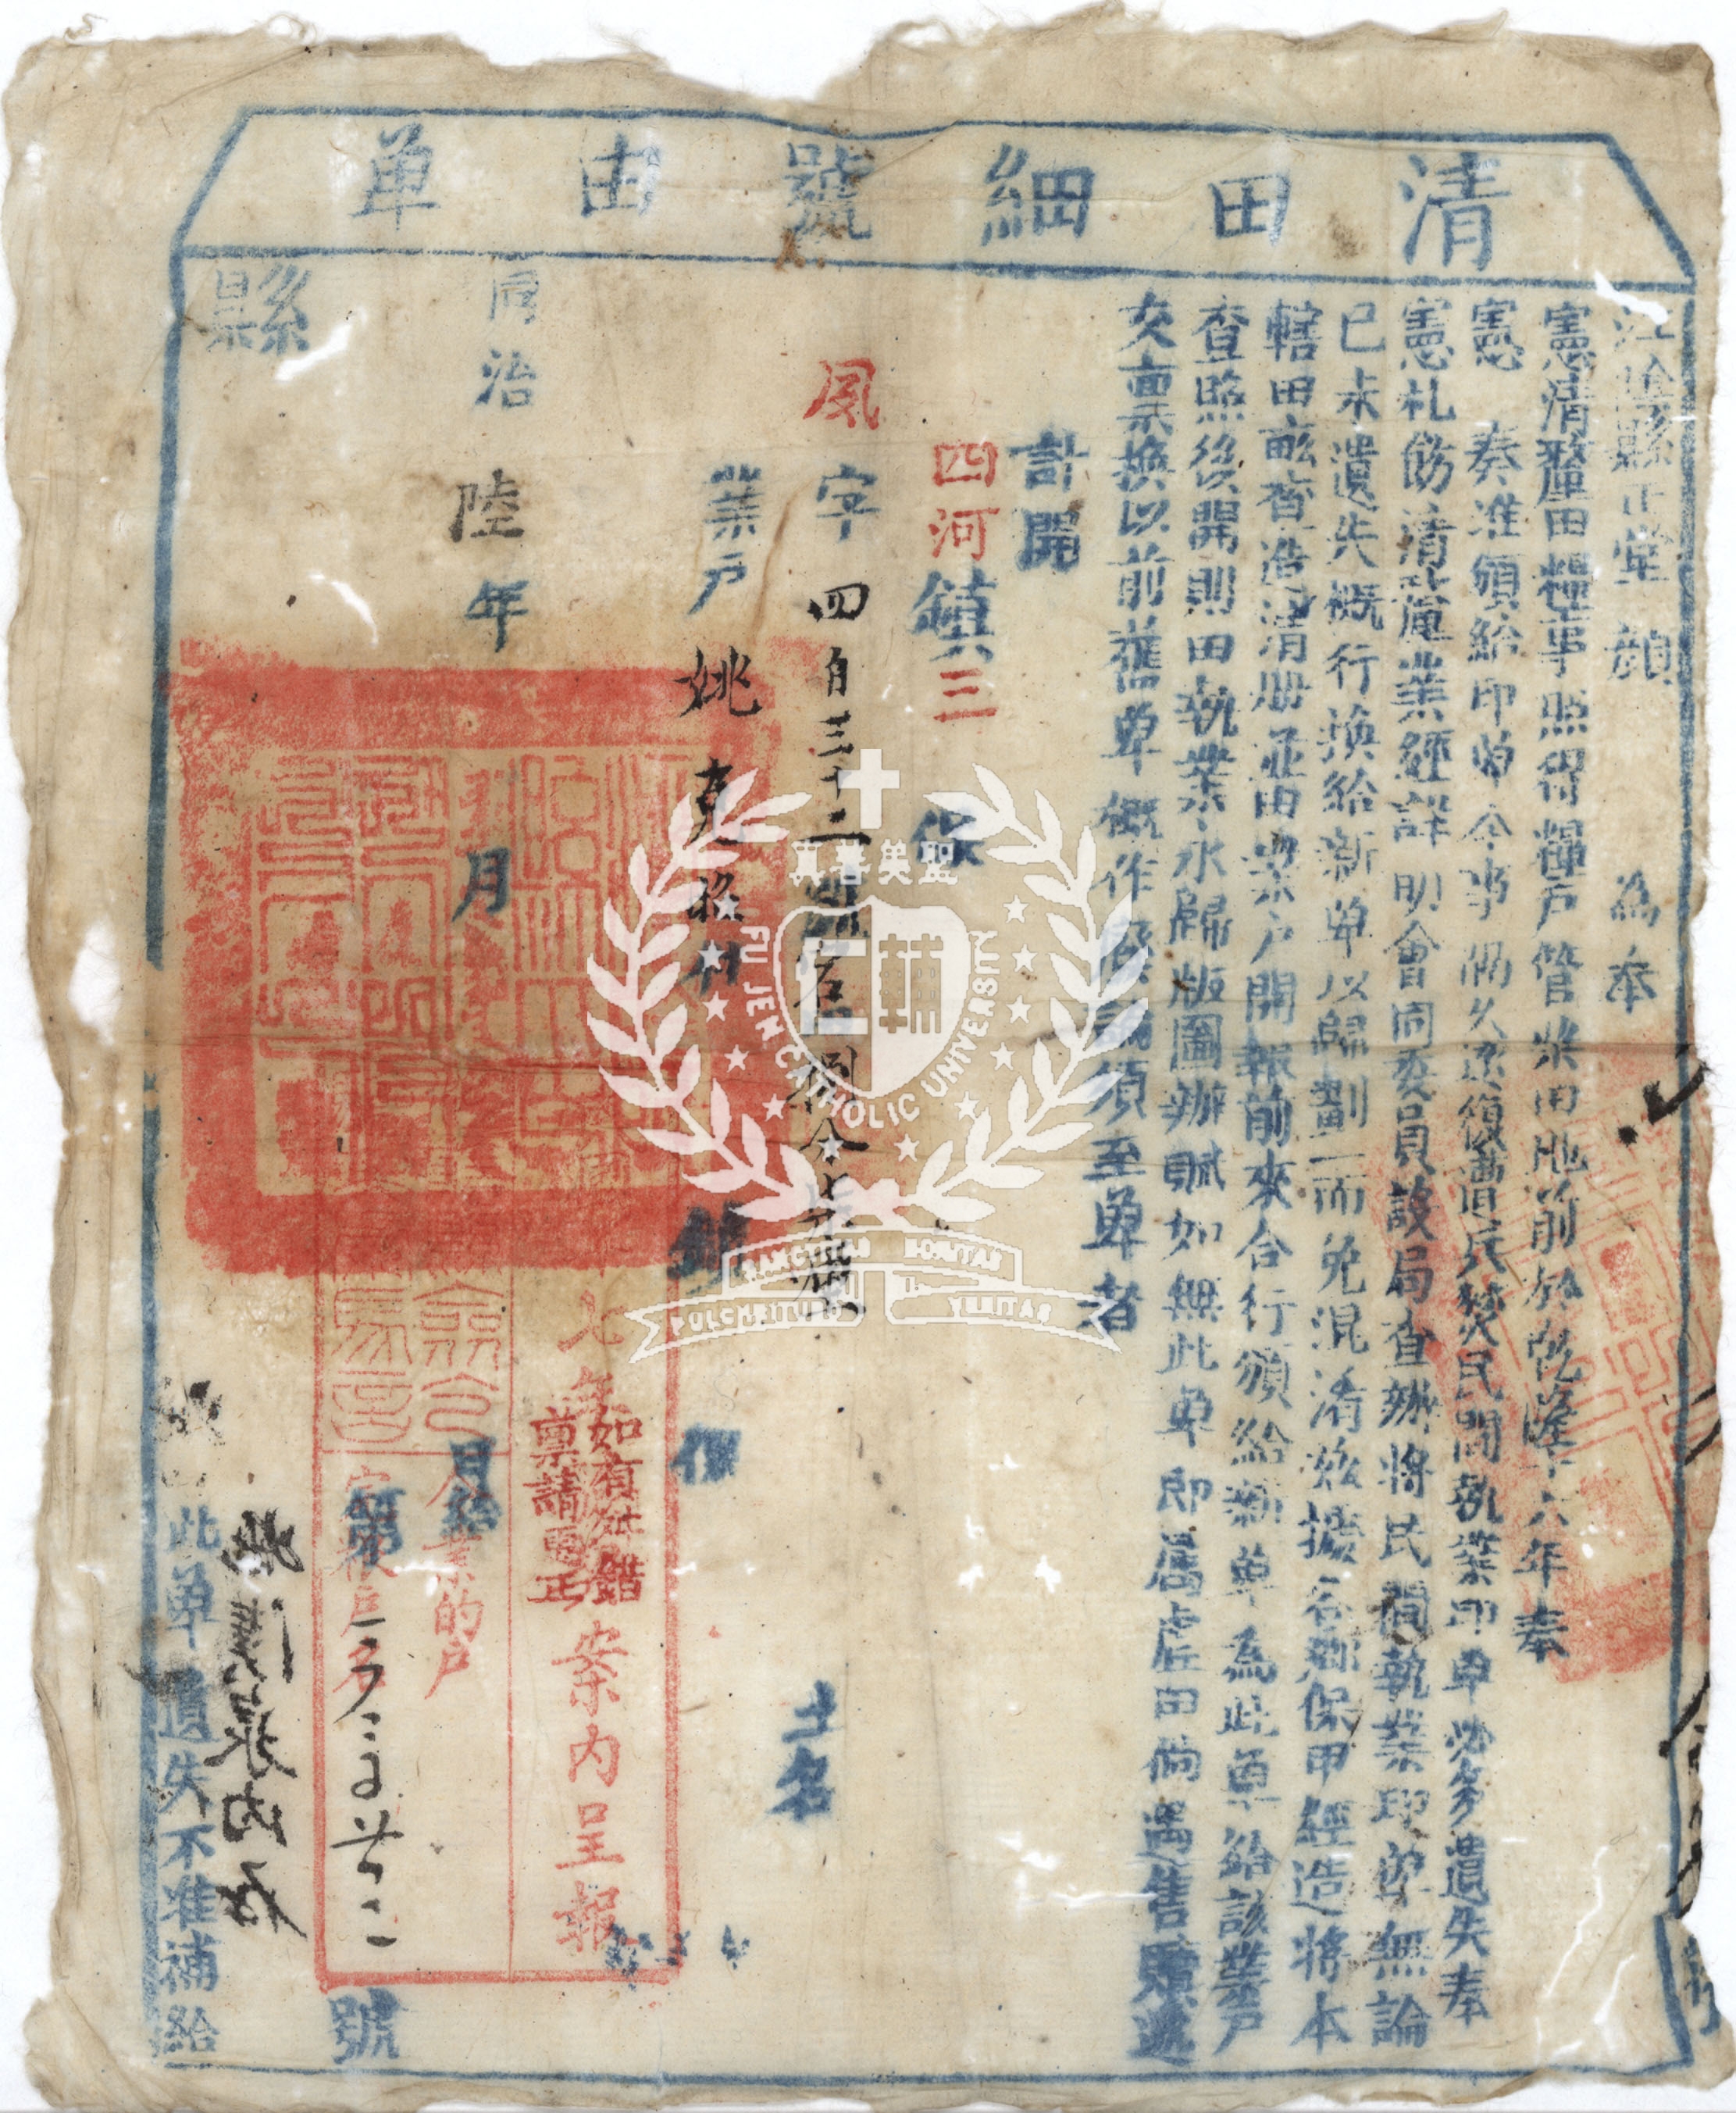 清田細號由單
江陰縣正堂顏 為奉
憲清釐田糧事照得糧戶管業田地前於乾隆十六年奉
憲 奏准頒給印單今事隔久遠復遭兵燹民間執業印單必多遺失奉
憲札飭清釐業經詳明會同委員設局查辦將民間執業印單無論
已未遺失概行換給新單以歸劃一而免混淆茲據各鄉保甲經造將本
轄田畝查造清册並由業戶開報前來合行頒給新單為此單給該業戶
查照後開則田執業永歸版圖辦賦如無此單即屬虛田倘遇售賣遞
交稟換以前舊單概作廢論須至單者
計開
四河鎮三 保
土名
風字四百三十二號
業戶姚
如有舛錯
稟請更正
七年
案內呈報
業的戶
同治陸年 月 日給
第 號
縣
此單遺失不准補給
真善美聖
FU JEN CATHOLIC UNIVERSITY
SANCTITAS BONITAS
PULCHRITUDO VERITAS